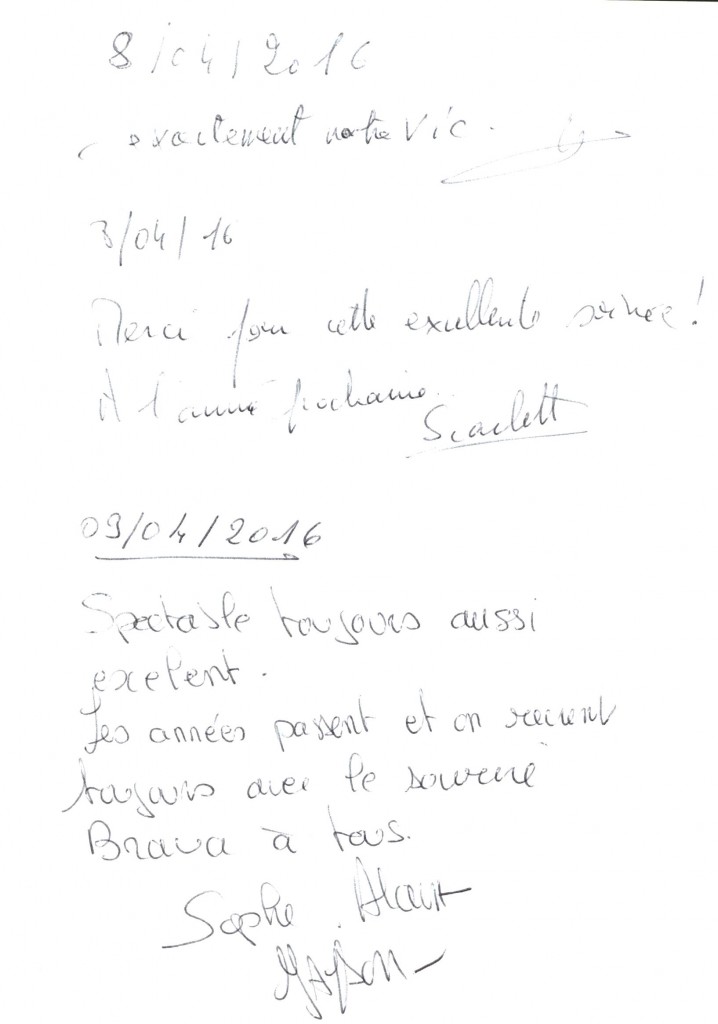 8/04/2016
exactement notre vie.
3/04/16
Merci pour cette excellente soirée!
A l'année prochaine.
Scarlett
09/04/2016
Spectacle toujours aussi
exelent.
Les années passent et on revient
toujours avec le sourire
Bravo à tous.
Sophie Alain